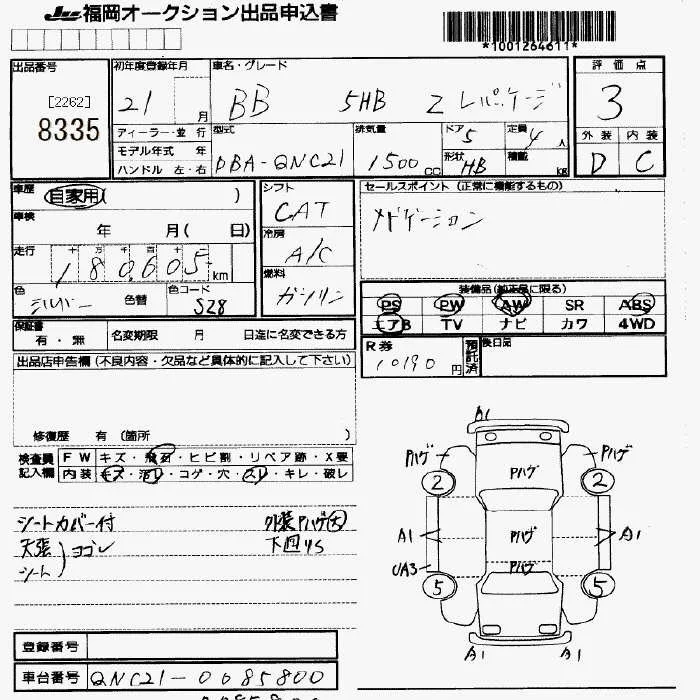 JU 福岡オークション出品申込書
*1001264611*
出品番号 初年度登録年月 車名・グレード 評価点
[2262] 8335
21 月 BB 5HB Z Lパッケージ 3
ディーラー・並行 型式 排気量 ドア 5 定員 4 人 外装 内装
モデル年式 年 DBA-QNC21 1500 CC 形状 HB 積載 kg D C
ハンドル 左・右
車歴 自家用( ) シフト CAT セールスポイント(正常に機能するもの)
車検 年 月( 日) 冷房 A/C ナビゲーション
走行 十 万 千 百 十 180,605 km
燃料 ガソリン
色 シルバー 色替 色コード S28 装備品(純正品に限る)
PS PW AW SR ABS
エアB TV ナビ カワ 4WD
保証書 有・無 名変期限 月 日迄に名変できる方
R券 10190 円 預託済 後日品
出品店申告欄(不良内容・欠品など具体的に記入して下さい)
修復歴 有(箇所 )
検査員記入欄 FW キズ・飛石・ヒビ割・リペア跡・X要
内装 キズ・汚レ・コゲ・穴・スレ・キレ・破レ
シートカバー付 外装Pハゲ大
天張 ヨゴレ 下回りS
シート
A1
Pハゲ Pハゲ Pハゲ
2 2
A1 Pハゲ A1
UA3 Pハゲ
5 5
A1 A1
登録番号
車台番号 QNC21-0085800